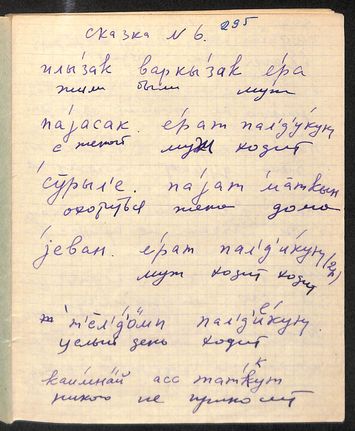 сказка N 6. 295
илы́зак варкы́зак е́ра
жили были муж
па́jасак. е́рат палд'у́куң
с женой муж ходит
сӯ́рыл'е. па́jат ма́ткын
охотиться жена дома
jеван. е́рат пал'д'и́куң (2р.)
муж ходит ходит
т'е̄л'д'о̄мп пал'д'и́куң.
целый день ходит
каимна́й асс татку́т
никого не приносит